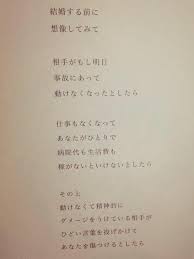 結婚する前に
想像してみて
相手がもし明日
事故にあって
動けなくなったとしたら
仕事もなくなって
あなたがひとりで
病院代も生活費も
稼がないといけないとしたら
その上
動けなくて精神的に
ダメージをうけている相手が
ひどい言葉を投げかけて
あなたを傷つけるとしたら